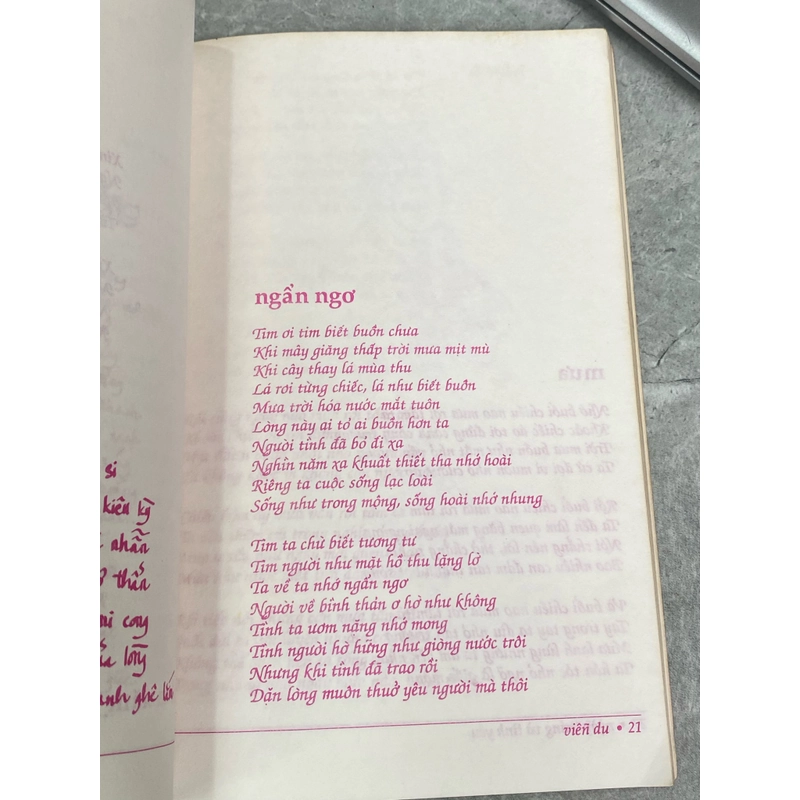 si
kiêu kỳ
nhẫn
thấn
lòng
ngẩn ngơ
Tim ơi tim biết buồn chưa
Khi mây giăng thấp trời mưa mịt mù
Khi cây thay lá mùa thu
Lá rơi từng chiếc, lá như biết buồn
Mưa trời hóa nước mắt tuôn
Lòng này ai tỏ ai buồn hơn ta
Người tình đã bỏ đi xa
Nghìn năm xa khuất thiết tha nhớ hoài
Riêng ta cuộc sống lạc loài
Sống như trong mộng, sống hoài nhớ nhung
Tim ta chử biết tương tư
Tim người như mặt hồ thu lặng lờ
Ta về ta nhớ ngẩn ngơ
Người về bình thản ơ hờ như không
Tình ta ươm nặng nhớ mong
Tình người hờ hững như giòng nước trôi
Nhưng khi tình đã trao rồi
Dặn lòng muôn thuở yêu người mà thôi
viễn du • 21